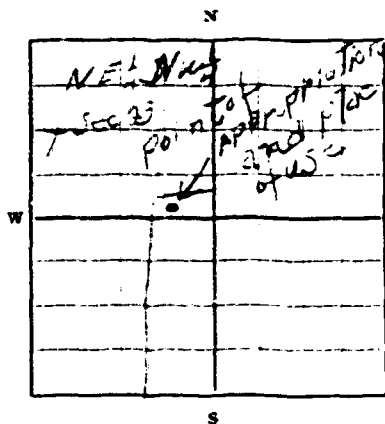 N
NE¼ NW¼
Sec 3
point of
appropriation
and place
of use
W
S